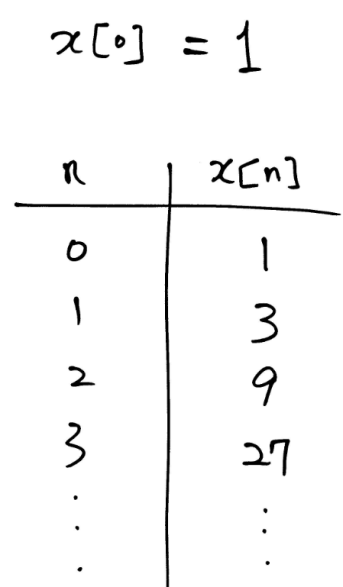 x[0] = 1
n x[n]
0 1
1 3
2 9
3 27
⋮ ⋮